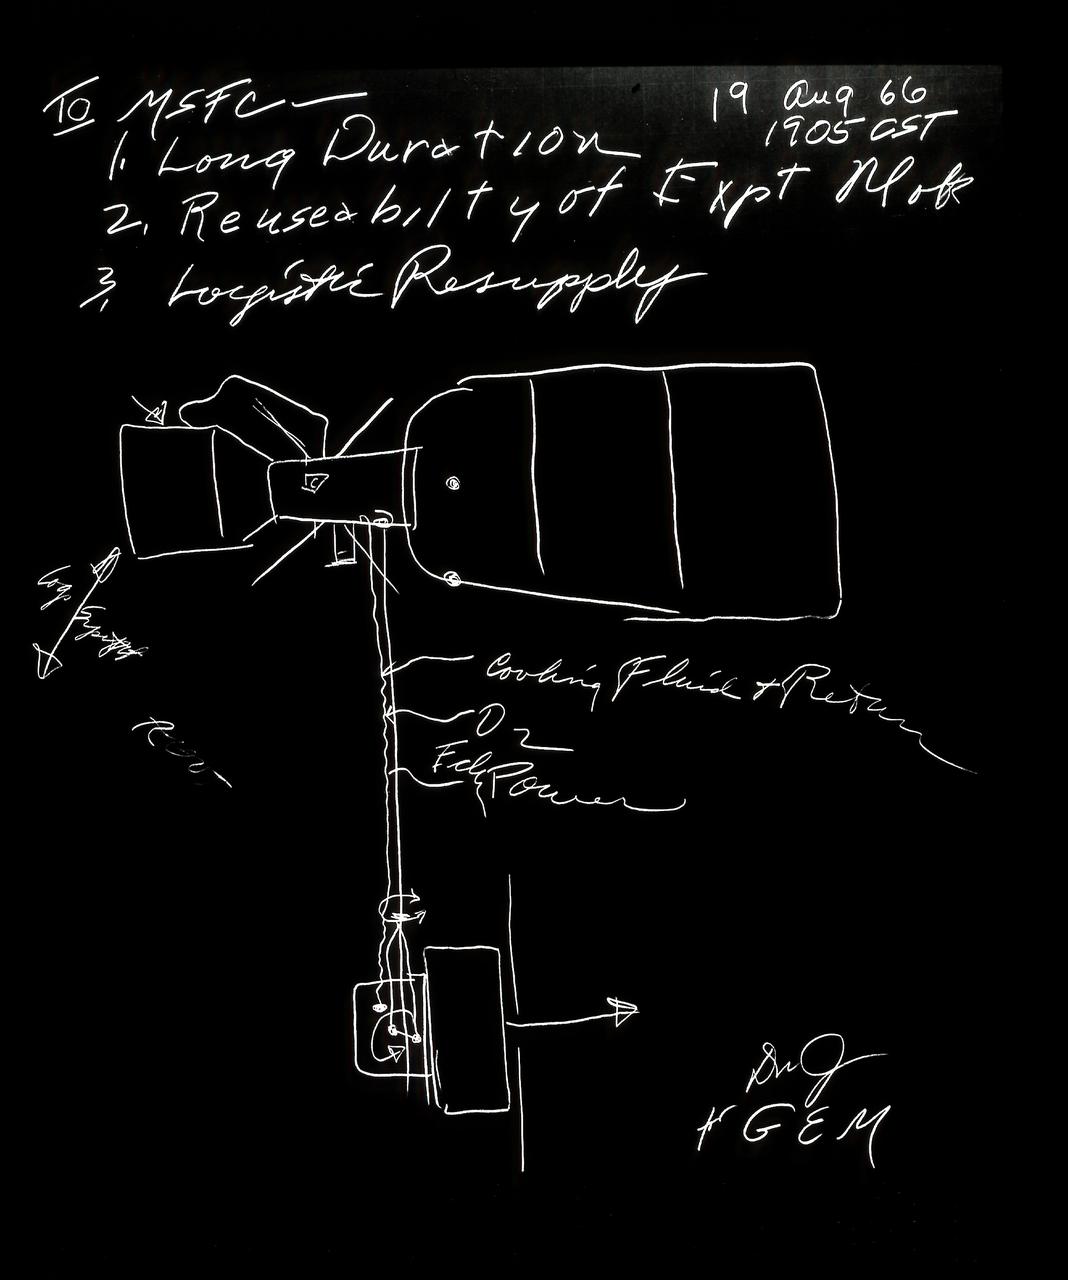 TO MSFC —
19 Aug 66
1905 CST
1. Long Duration
2. Reuseabilty of Expt Mods
3. Logistic Resupply
Cooling Fluid & Return
O2
Power
GEM